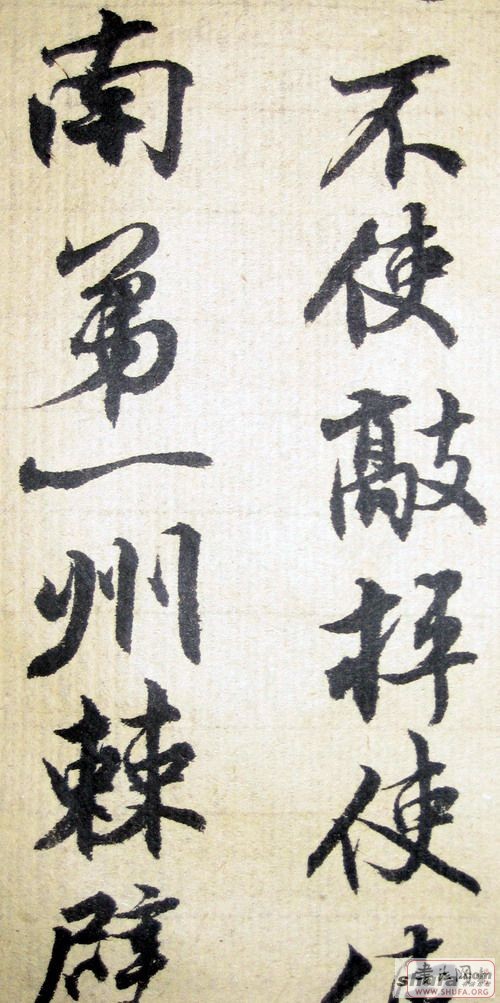 不使敲抨使
南第一州棘
WWW.SHUFA.ORG